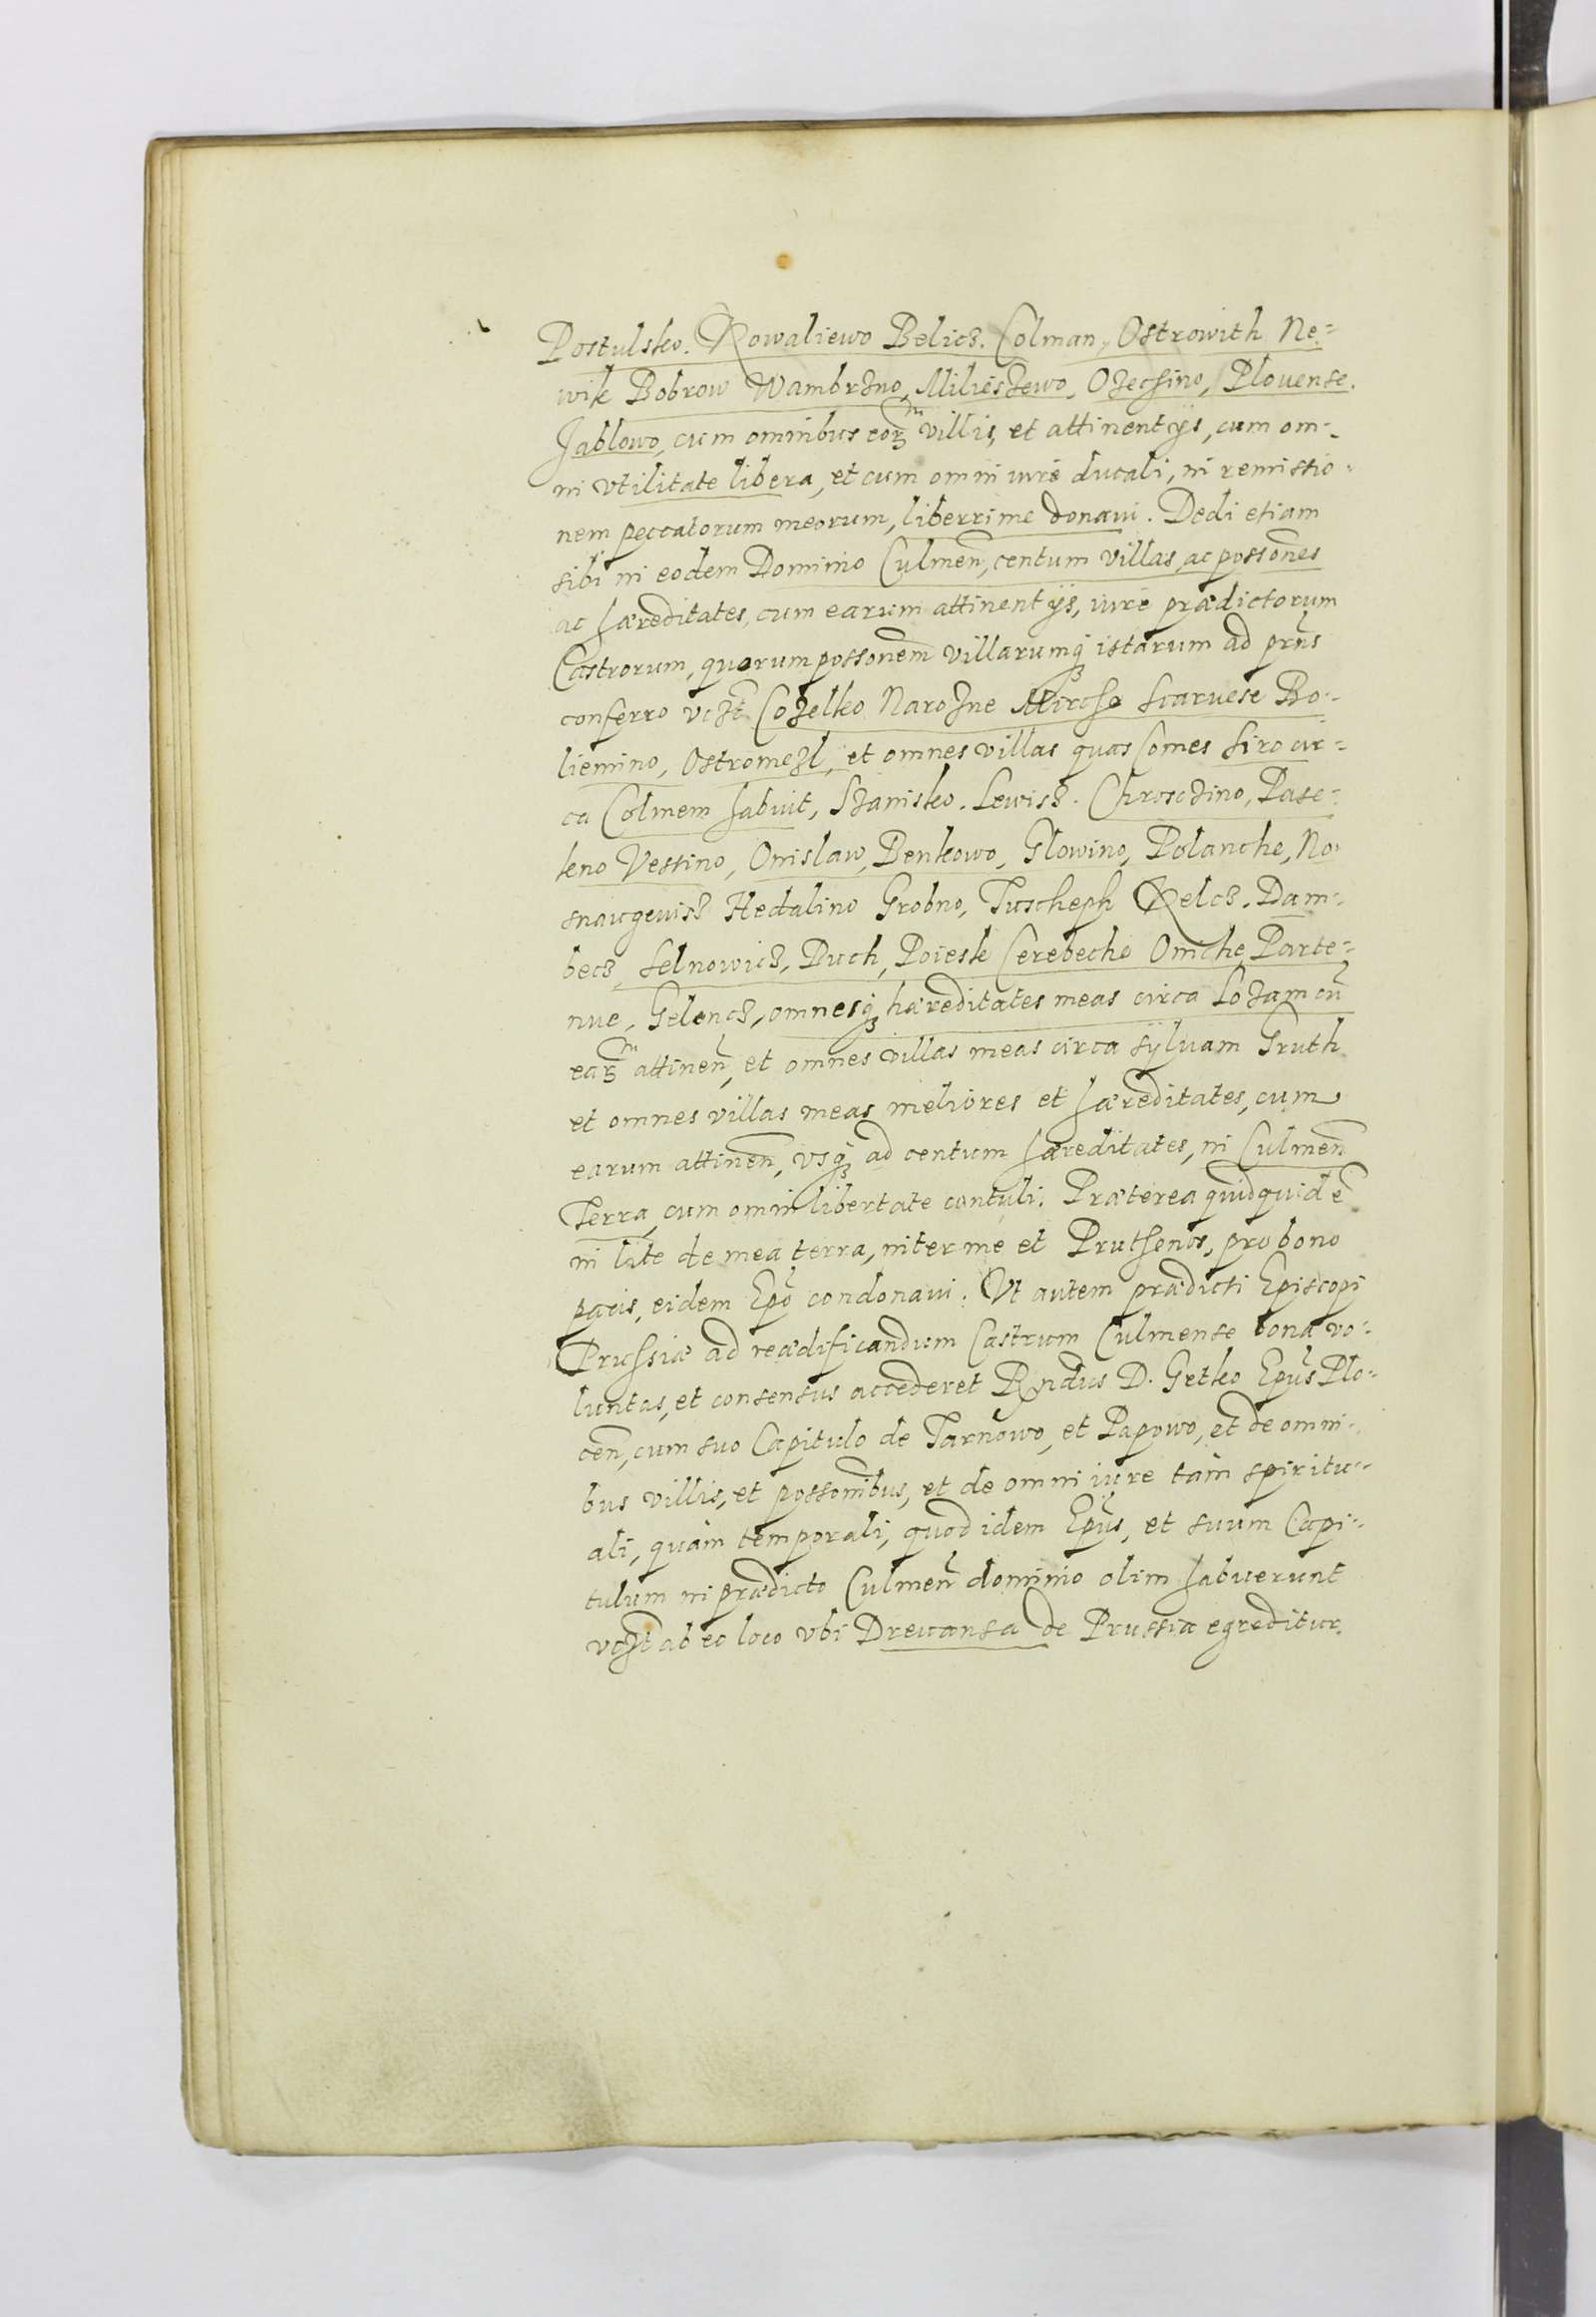 Postulsko. Kowaliewo Belicz. Colman, Ostrowith Ne-
wik Bobrow Wambrzno, Milieszewo, Ozechino, Plouense.
Jablowo, cum omnibus eorum villis, et attinentijs, cum om-
ni vtilitate libera, et cum omni iure ducali, in remissio-
nem peccatorum meorum, liberrime donaui. Dedi etiam
sibi in eodem Dominio Culmeñ, centum villas, ac possones
ac hæreditates, cum earum attinentijs, iure prædictorum
Castrorum, quorum possonem villarumq istarum ad prñs
conferro vczt. Cozelko Narozne Mircho Scaruese Bo-
liemino, Ostromezl, et omnes villas quas Comes Siro cir-
ca Colmem habuit, Stanisko. Lewisz. Chrosczino, Pase-
keno Vessino, Onislaw, Benkowo, Glowino, Polanche, No-
snaugeuisz Hedalino Grobno, Tuscheph Kelcz. Dam-
becz, Selnowicz, Ruch, Poiesk Cerebecho Oniche, Parte-
nue, Gelencz, omnesq hæreditates meas circa Lozam cũ
earum attineñ, et omnes villas meas circa syluam Gruth
et omnes villas meas meliores et hæreditates, cum
earum attineñ, vsq ad centum hæreditates, in Culmeñ
Terra, cum omni libertate contuli. Præterea quidquid ẽ
in lite de mea terra, inter me et Pruthenos, pro bono
pacis, eidem Epõ condonaui. Vt autem prædicti Episcopi
Prussiæ ad reædificandum Castrum Culmense bona vo-
luntas, et consensus accederet Rndus D. Getko Epũs Plo-
ceñ, cum suo Capitulo de Tarnowo, et Papowo, et de omni-
bus villis, et possonibus, et de omni iure tàm spiritu-
ali, quàm temporali, quod idem Epũs, et suum Capi-
tulum in prædicto Culmeñ dominio olim habuerunt
vczt ab eo loco vbi Dreuansa de Prussia egreditur.